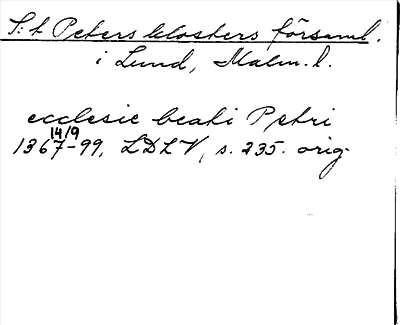 S:t Peters klosters församl.
i Lund, Malm. l.
ecclesie beati Petri
14/9
1367-99, LDLV, s. 235. orig.